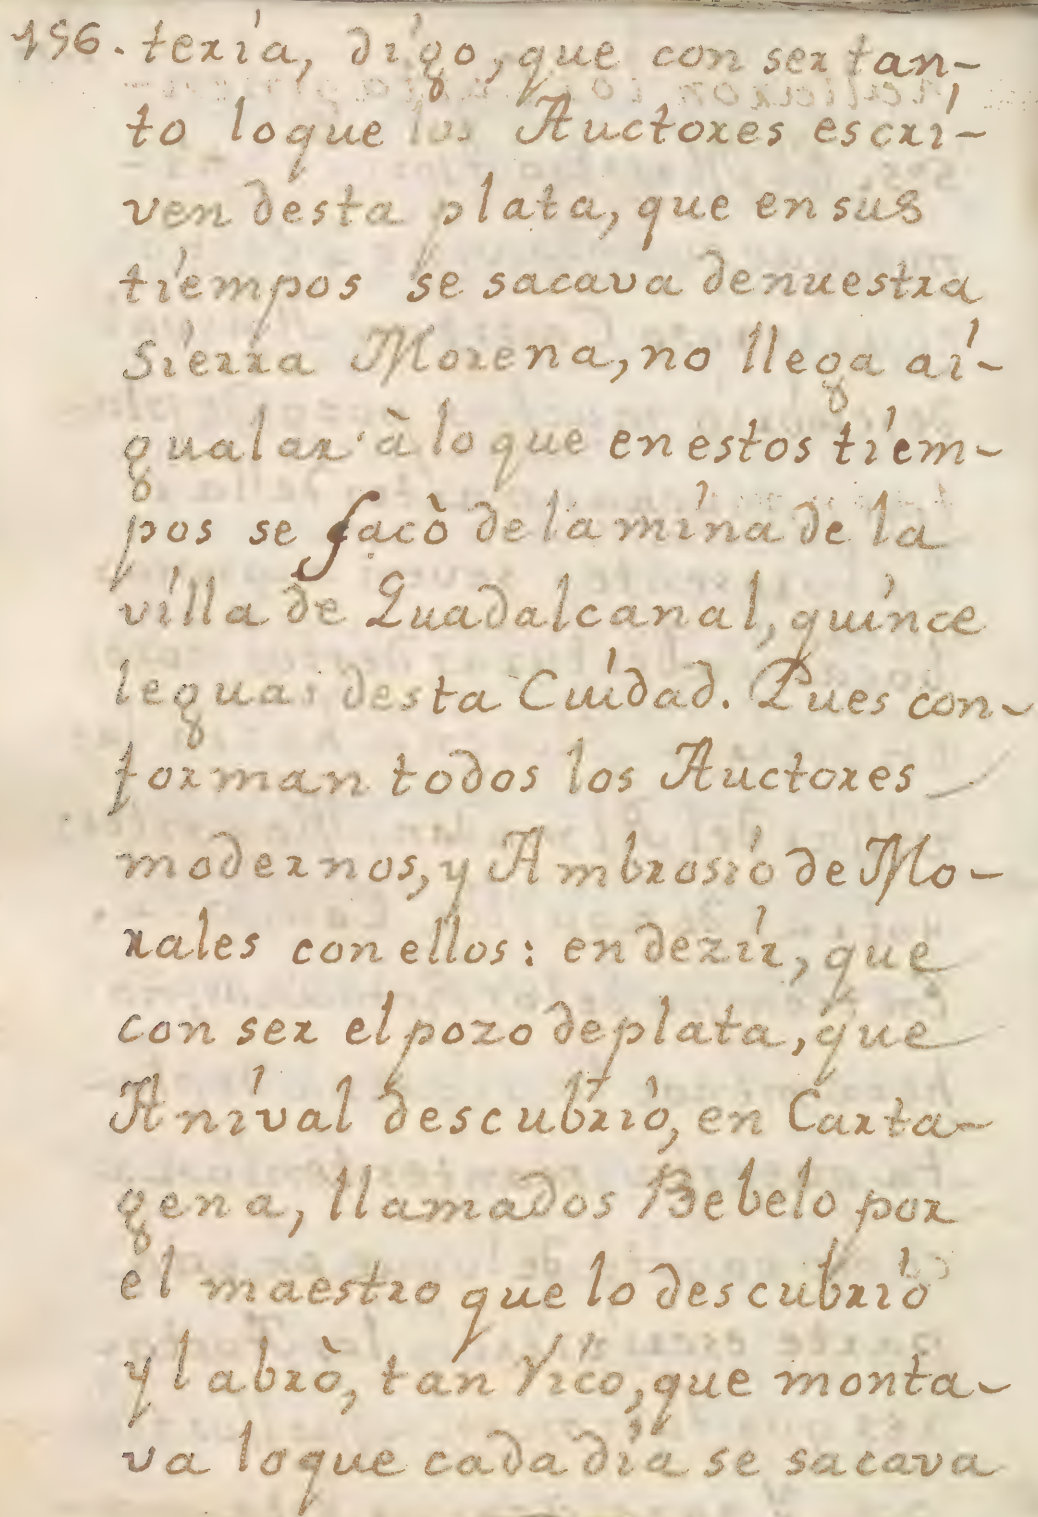 196. teria, digo, que con ser tan-
to loque los Auctores escri-
ven desta plata, que en sus
tiempos se sacava denuestra
Sierra Morena, no llega ai-
gualar à lo que en estos tiem-
pos se sacò de la mina de la
villa de Guadalcanal, quince
leguas desta Ciudad. Pues con-
forman todos los Auctores
modernos, y Ambrosio de Mo-
rales con ellos: en dezir, que
con ser el pozo de plata, que
Anival descubrio, en Carta-
gena, llamados Bebelo por
el maestro que lo descubrio
y labrò, tan rico, que monta-
va loque cada dia se sacava